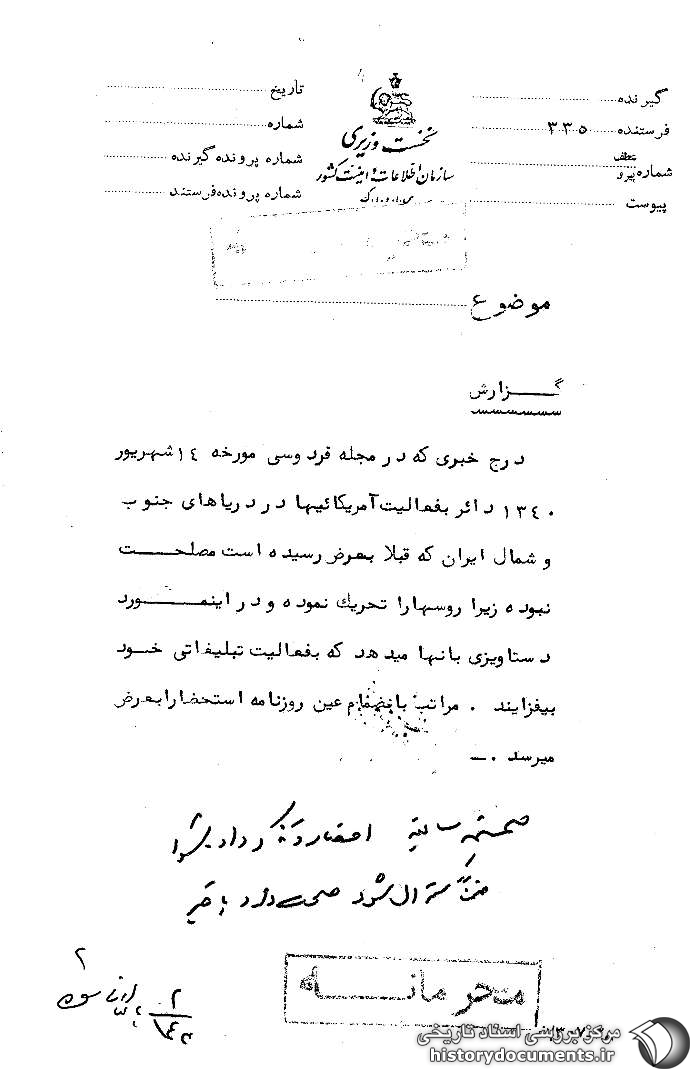 گیرنده
فرستنده ۳۳۵
شماره عطف پیرو
پیوست
نخست وزیری
سازمان اطلاعات و امنیت کشور
س.ا.و.ا.ک
تاریخ
شماره
شماره پرونده گیرنده
شماره پرونده فرستنده
موضوع
گزارش
درج خبری که در مجله فردوسی مورخه ۱٤ شهریور
۱۳٤۰ دائر بفعالیت آمریکائیها در دریاهای جنوب
و شمال ایران که قبلا بعرض رسیده است مصلحت
نبوده زیرا روسهارا تحریك نموده و در اینمورد
دستاویزی بانها میدهد که بفعالیت تبلیغاتی خود
بیفزایند . مراتب بانضمام عین روزنامه استحضارا بعرض
میرسد . ـ
احضار و تذکر داده شود
ضمناً سئوال شود صحت دارد یا خیر
محرمانه
مرکز بررسی اسناد تاریخی
historydocuments.ir